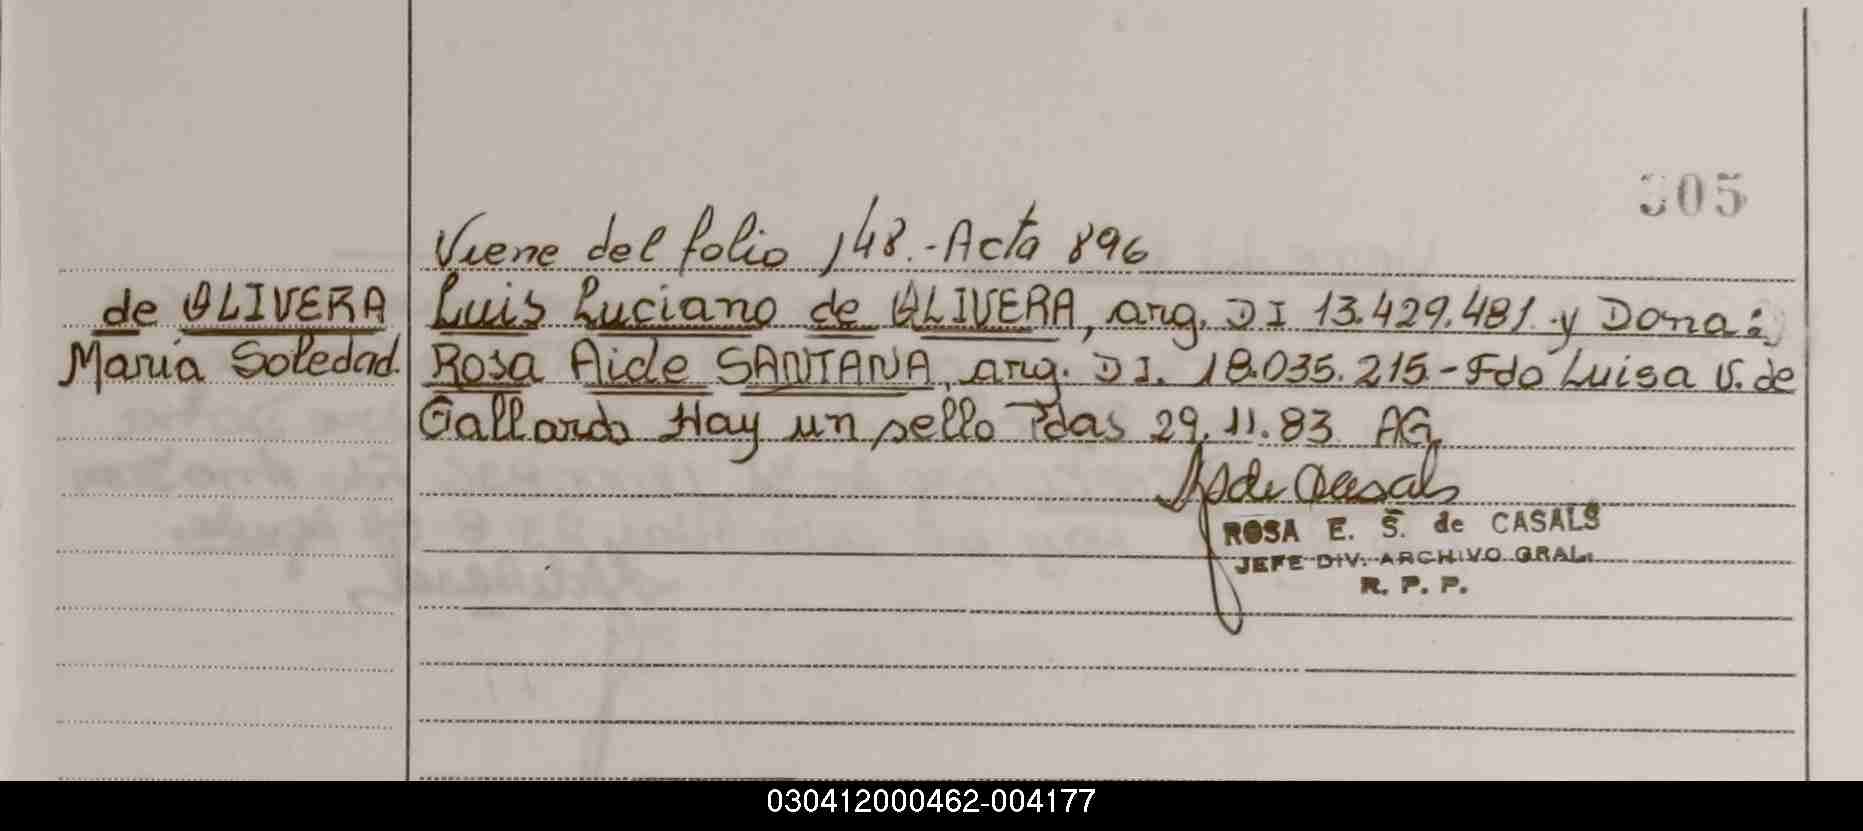 305
Viene del folio 148.-Acta 896
de OLIVERA Luis Luciano de OLIVERA, arg. DI 13.429.481 y Dona:
Maria Soledad. Rosa Aide SANTANA, arg. DI. 18.035.215-Fdo Luisa V. de
Gallardo Hay un sello Pdas 29.11.83 AG
de Casals
ROSA E. S. de CASALS
JEFE DIV. ARCHIVO GRAL.
R. P. P.
030412000462-004177